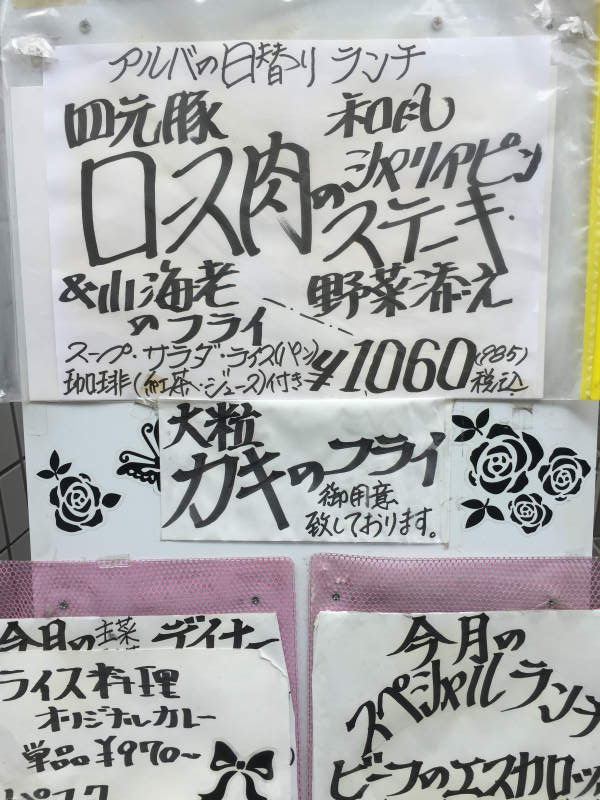 アルバの日替りランチ
四元豚 和風
ロース肉のシャリアピン
ステーキ
&小海老 野菜添え
のフライ
スープ・サラダ・ライス(パン)
珈琲(紅茶・ジュース)付き ¥1060(985)
税込
大粒
カキのフライ
御用意
致しております。
今月の主菜ディナー
ライス料理
オリジナルカレー
単品¥970〜
今月の
スペシャルランチ
ビーフのエスカロッ